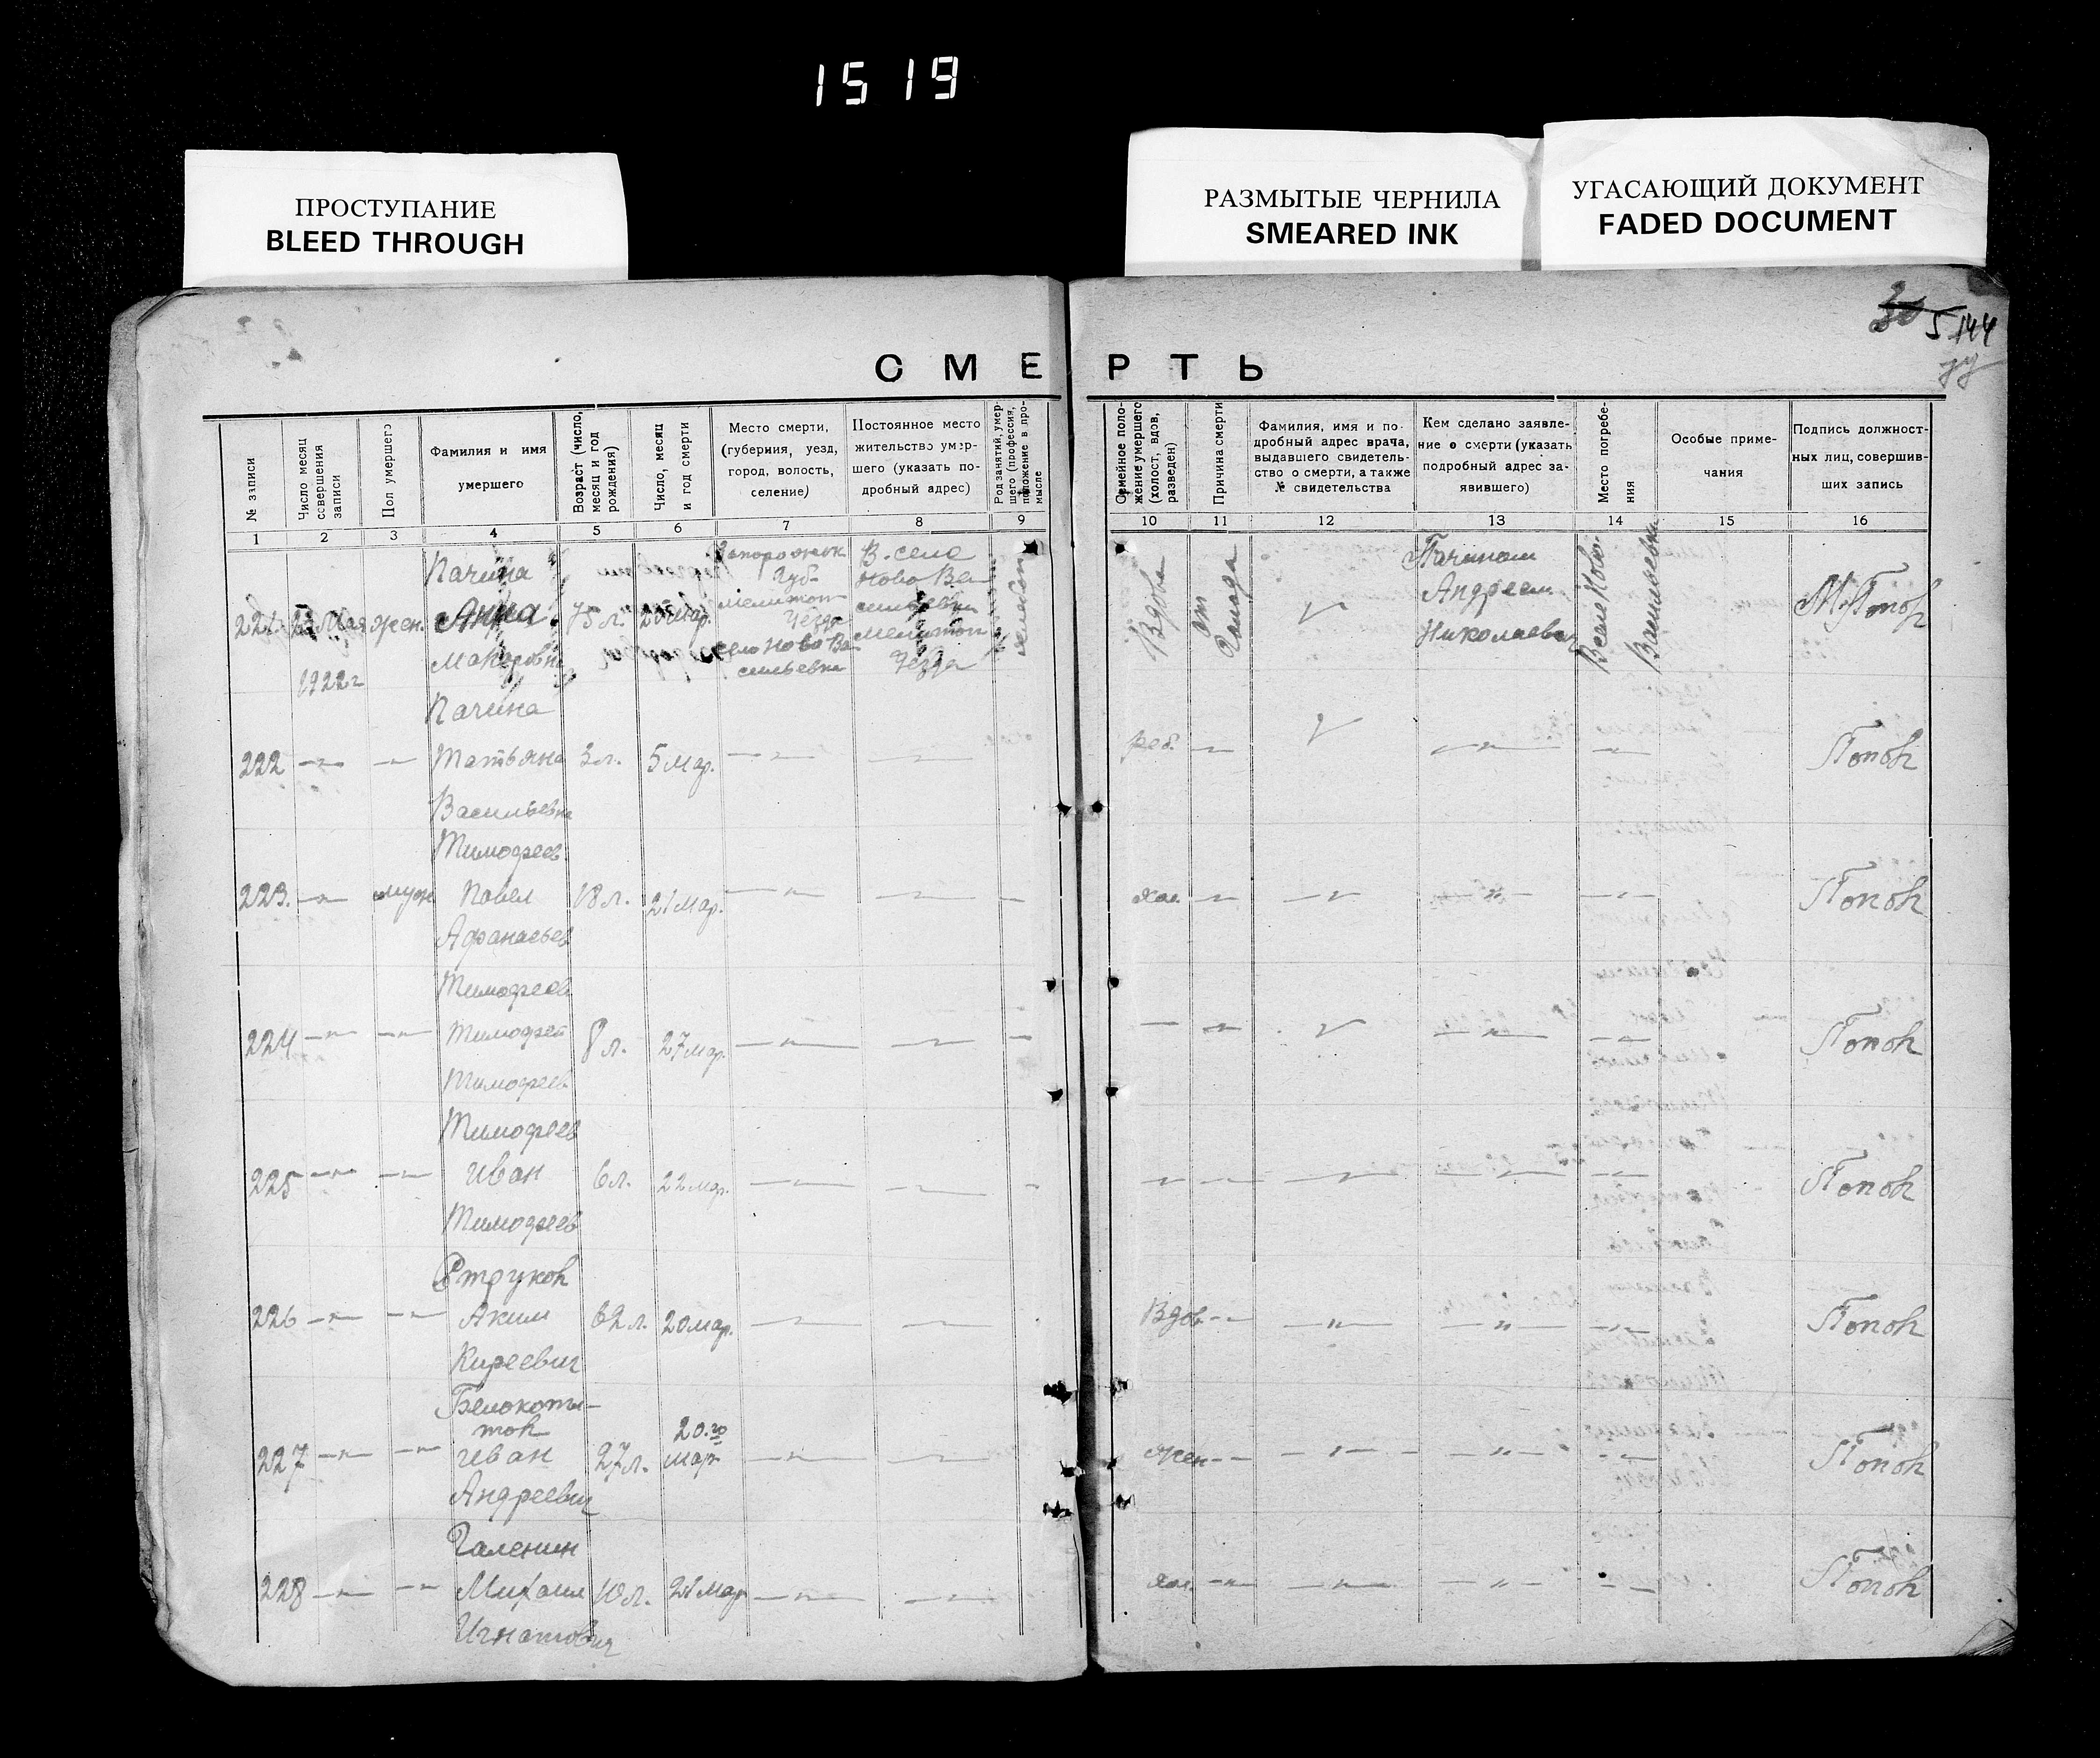 1519
ПРОСТУПАНИЕ
BLEED THROUGH
РАЗМЫТЫЕ ЧЕРНИЛА
SMEARED INK
УГАСАЮЩИЙ ДОКУМЕНТ
FADED DOCUMENT
5 144
СМЕРТЬ
№ записи
Число месяц
совершения
записи
Пол умершего
Фамилия и имя
умершего
Возраст (число,
месяц и год
рождения)
Число, месяц
и год смерти
Место смерти,
(губерния, уезд,
город, волость,
селение)
Постоянное место
жительство умер-
шего (указать по-
дробный адрес)
Род занятий, умер-
шего (профессия,
положение в про-
мысле
Семейное поло-
жение умершего
(холост, вдов,
разведен)
Причина смерти
Фамилия, имя и по-
дробный адрес врача,
выдавшего свидетель-
ство о смерти, а также
№ свидетельства
Кем сделано заявле-
ние о смерти (указать
подробный адрес за-
явившего)
Место погребе-
ния
Особые приме-
чания
Подпись должност-
ных лиц, совершив-
ших запись
1 2 3 4 5 6 7 8 9 10 11 12 13 14 15 16
221
Мая
1922 г
жен.
Пачина
Анна
Макаровна
75 л.
Мар.
Запорожск
Губ-
Мелитоп
Уезда
село Ново Ва
сильевка
В. село
Ново Ва
сильевка
Мелитоп
Уезда
Вдова
от
голода
Пачиным
Андреем
Николаевич
Селе Ново-
Васильевка
М. Попов
222 —"— —"—
Пачина
Татьяна
Васильевна
3 л. 5 Мар. —"— —"—
реб. —"— —"— —"—
Попов
223. —"— муж
Тимофеев
Павел
Афанасьев
18 л. 21 Мар. —"— —"— —
хол. —"— —"— —"— —"—
Попов
224 —"— —"—
Тимофеев
Тимофей
Тимофеев
8 л. 27 Мар. —"— —"— —
— —"— —"— —"—
Попов
225 —"— —"—
Тимофеев
Иван
Тимофеев
6 л. 22 мар. —"— —"— —
—"— —"— —"— —"— —"—
Попов
226 —"— —"—
Струков
Аким
Киреевич
62 л. 20 мар. —"— —"—
Вдов —"— —"— —"— —"—
Попов
227 —"— —"—
Белокопы-
тов
Иван
Андреевич
27 л.
20.го
мар.
—"— —"—
жен —"— —"— —"— —"—
Попов
228 —"— —"—
Галенин
Михаил
Игнатович
10 л. Мар —"— —"—
хол. —"— —"— —"— —"—
Попов